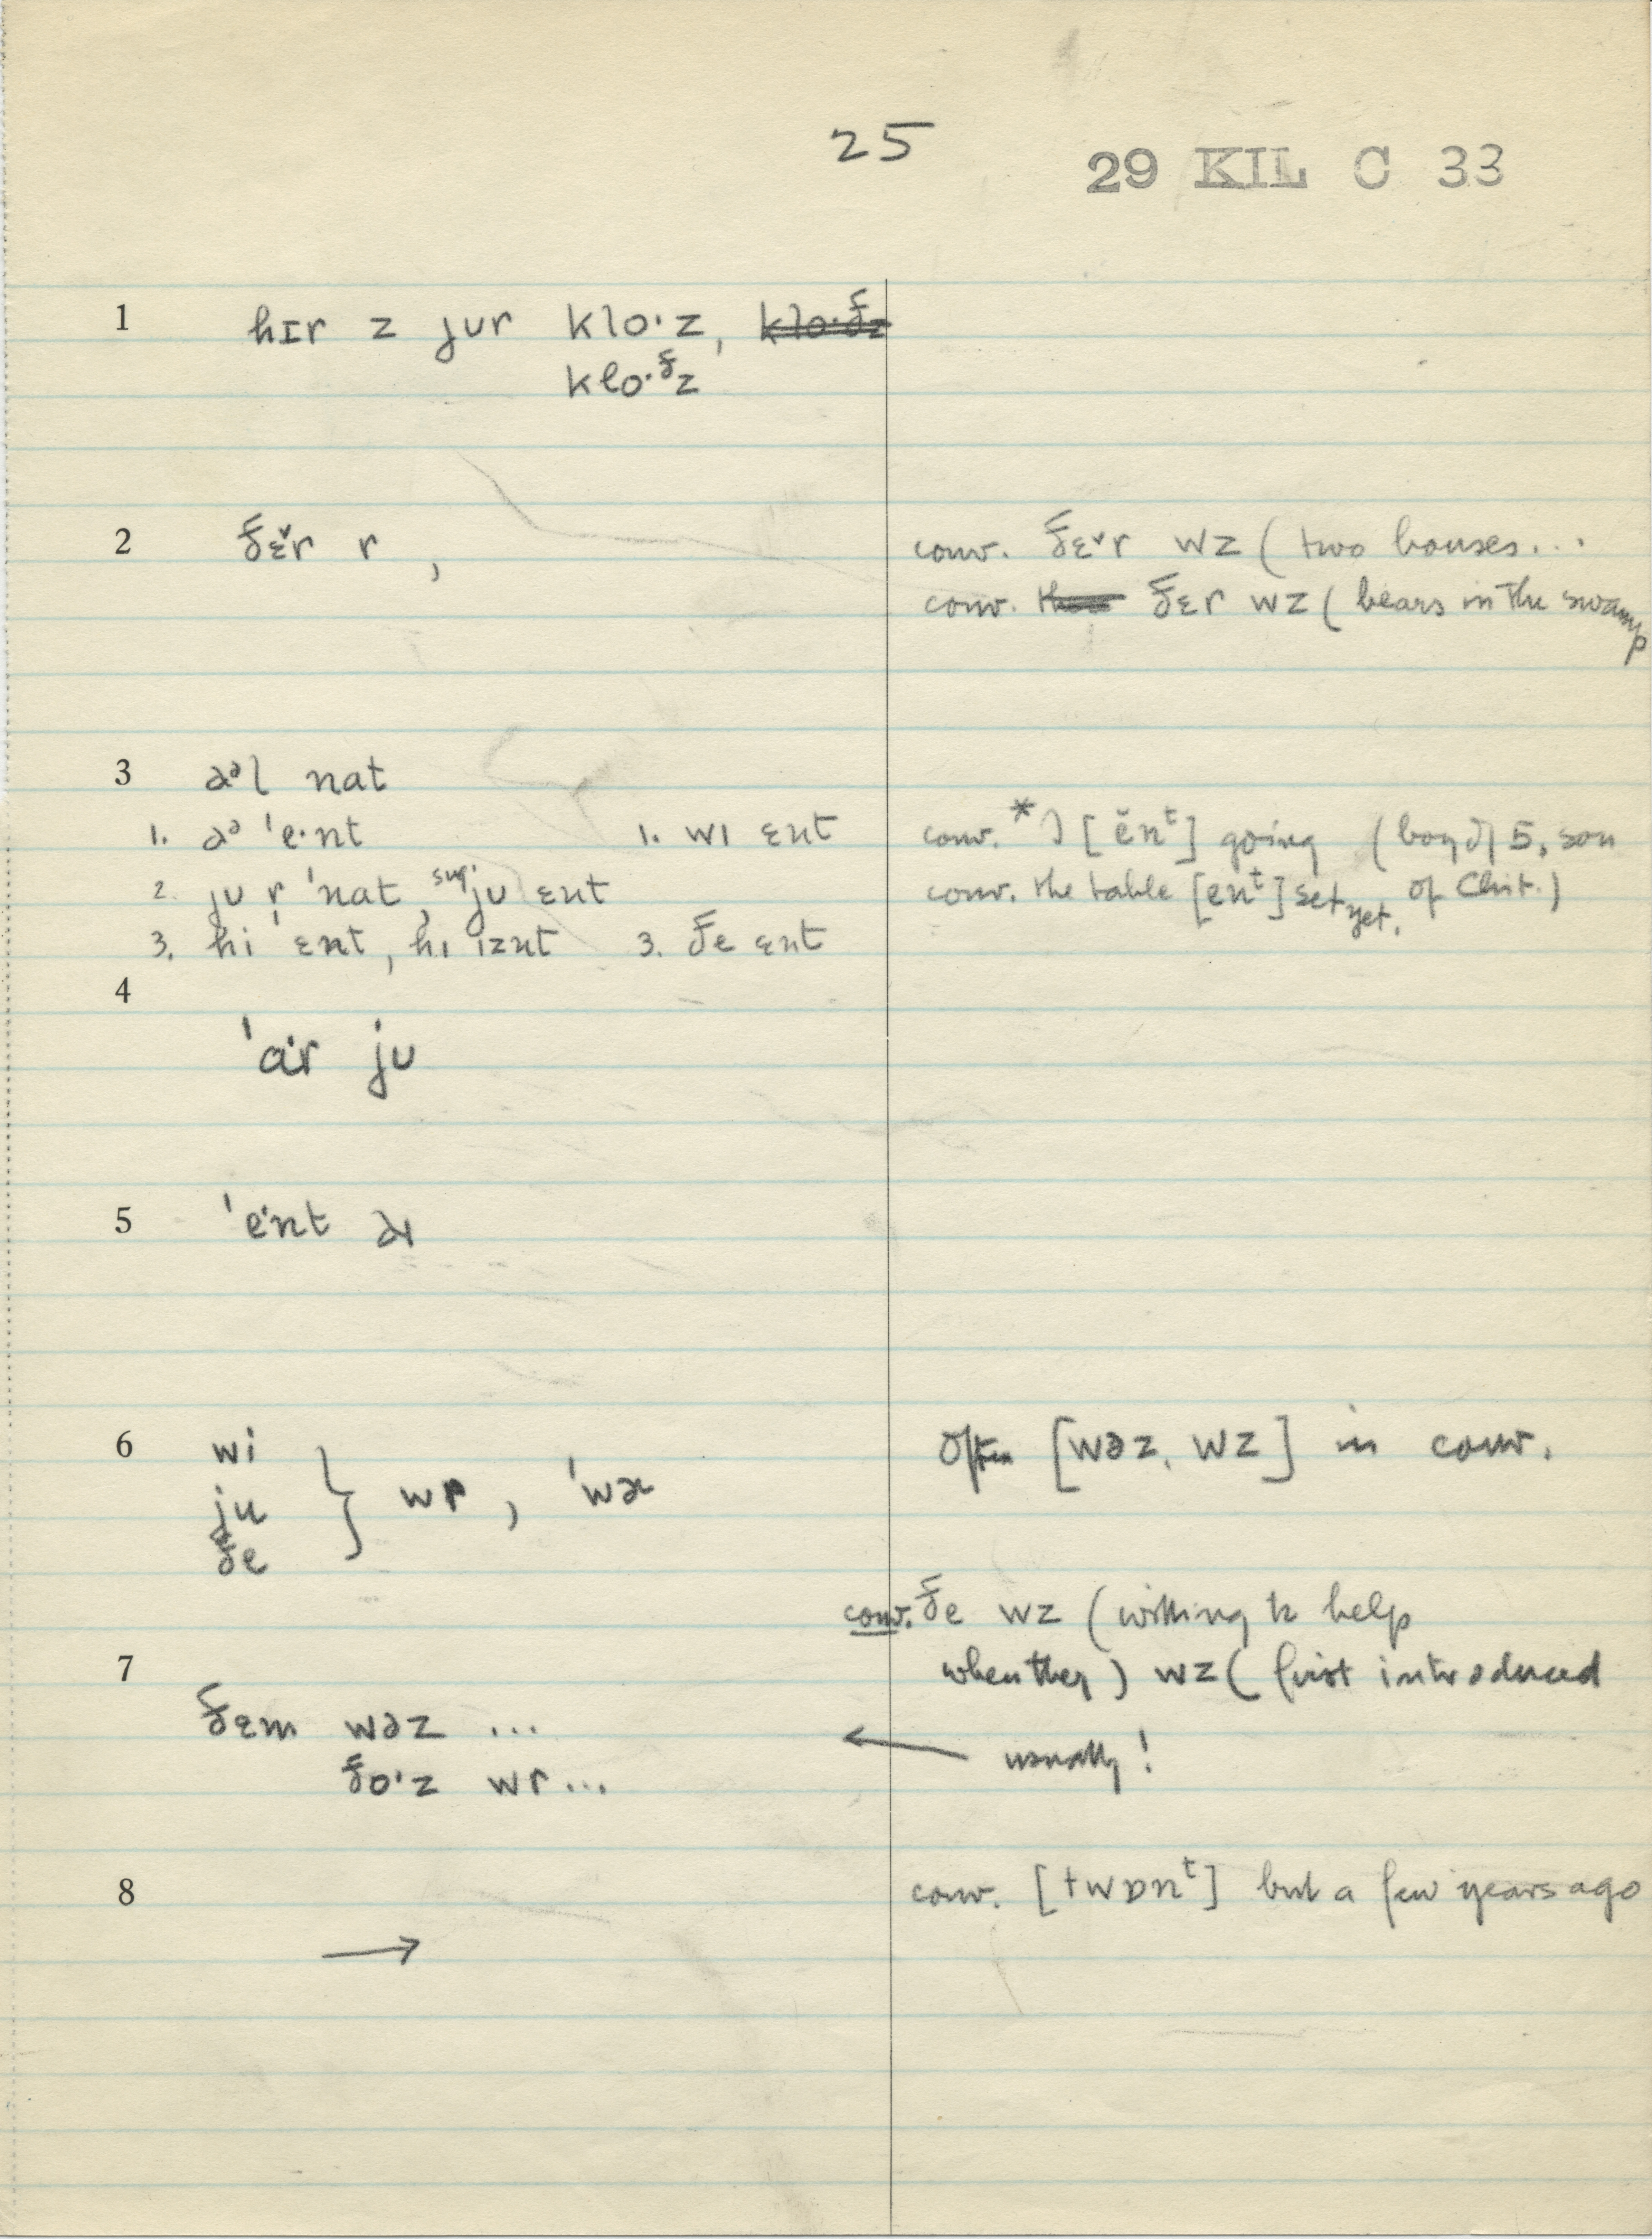 25
29 KIL C 33
1 hɪr z jʊr klo·z, klo·ðz
klo·ᶞz
2 ðɛ˅r r ,
conv. ðɛ˅r wz ( two houses...
conv. ðɛr wz ( bears in the swamp
3 aᵊl nat
1. aᵊ 'e·nt 1. wɪ ɛnt
conv. * I [ ĕnᵗ ] going (boy of 5, son
2. jʊ r 'nat, sug. jʊ ɛnt
conv. the table [enᵗ] set yet. of Chit.)
3. hi ɛnt, hɪ ɪznt 3. ðe ɛnt
4
'a·r jʊ
5 'e·nt aɪ
6 wi
ju } wr , 'wɚ
ðe
Often [wəz, wz] in conv.
conv. ðe wz (willing to help
7 when they ) wz ( first introduced
ðɛm wəz ...
← usually!
ðo·z wr...
8 conv. [twɒnᵗ] but a few years ago
→